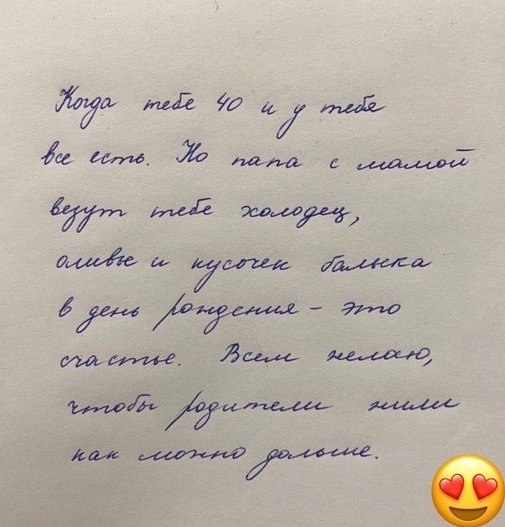 Когда тебе 40 и у тебя
все есть. Но папа с мамой
везут тебе холодец,
оливье и кусочек балыка
в день рождения – это
счастье. Всем желаю,
чтобы родители жили
как можно дольше.